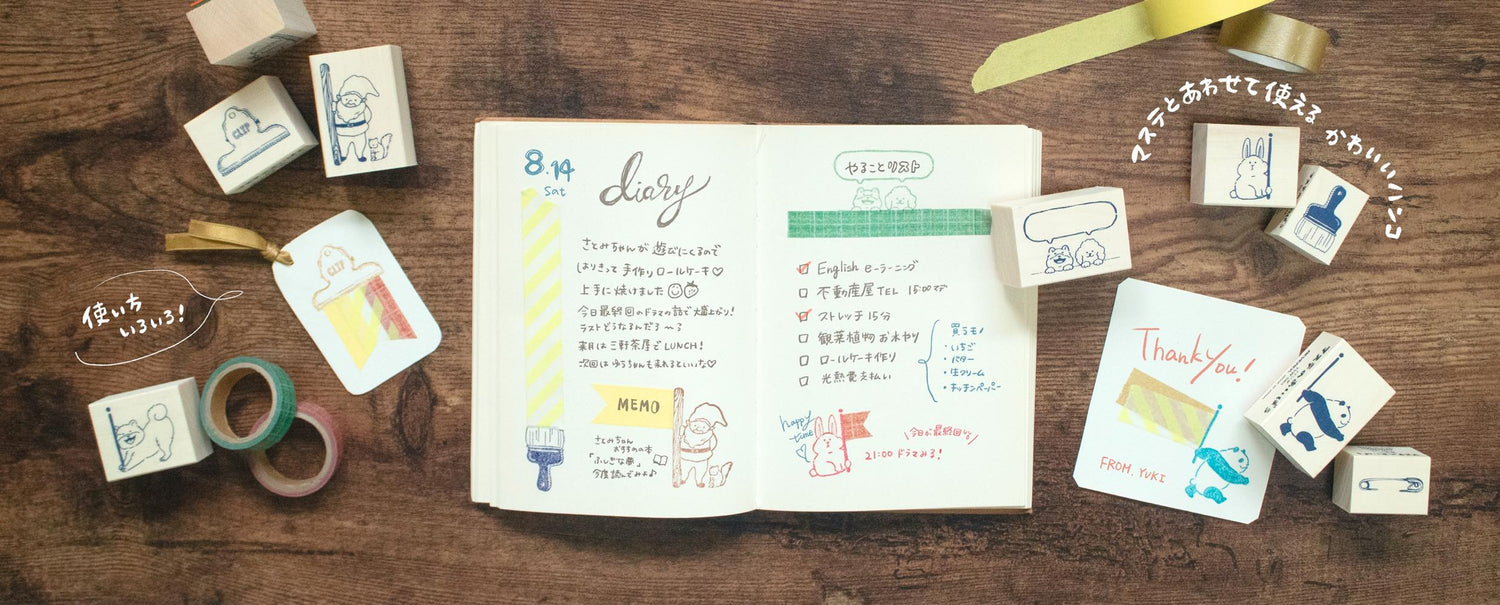 マステとあわせて使える かわいいハンコ
使いち
いろいろ!
CLIP
CLIP
8.14
Sat
diary
さとみちゃんが 遊びにくるので
はりきって 手作りロールケーキ♡
上手に焼けました
今日最終回のドラマの話で大盛上がり!
ラストどうなるんだろ〜ろ
来月は三軒茶屋でLUNCH!
次回は ゆうちゃんも来れるといいな♡
MEMO
さとみちゃん
おすすめの本
「ふしぎな夢」
今度読んでみよ♪
やることリスト
English e-ラーニング
不動産屋 TEL 15:00まで
ストレッチ 15分
観葉植物 お水やり
ロールケーキ作り
光熱費支払い
買うモノ
・いちご
・バター
・生クリーム
・キッチンペーパー
happy
time
今日が最終回!!
21:00 ドラマみる!
Thank you!
FROM. YUKI